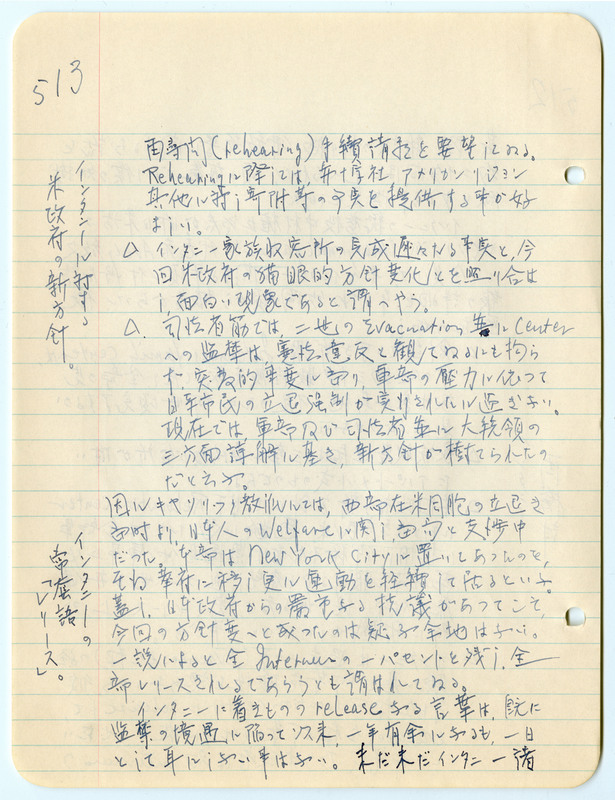 513
インタニーに対する
米政府の新方針。
再尋問(rehearing)手續請求を要望してゐる。
Rehearingに際しては、赤十字社 アメリカンリジョン
其他に對し寄附等の写真を提供する事が好
ましい。
△ インタニー家族収容所の完成遅々たる事実と、今
回米政府の猫眼的方針変化とを照り合は
し面白い現象であると謂へやう。
△ 司法省筋では、二世のEvacuation並にCenter
への監禁は、憲法違反と観てゐるにも拘ら
ず、突発的事変に当り、軍部の壓力に依つて
日系市民の立退強制が実行されたに過ぎない。
現在では軍部及び司法省並に大統領の
三方面諒解に基き、新方針が樹てられたの
だと云ふ。
因にキヤソリツク教化にては、西部在米同胞の立退き
当時より、日本人のWelfareに関し当局と交渉中
だつた。本部はNew York Cityに置いてあつたのを、
その華府に移し更に運動を継續して居るといふ。
蓋し、日本政府からの
抗議があつてこそ、
今回の方針変へと
つたのは疑ふ余地はない。
一説によると全Interneeの一パセントを残し、全
部レリースされるであらうとも謂はれてゐる。
インタニーの
常套語
「レリース」。
インタニーに着きもののreleaseなる言葉は、既に
監禁の境遇に陥つて以来、一年有余になるも、一日
として耳にしない事はない。未だ未だインタニー諸